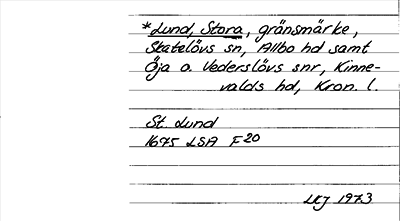 *Lund, Stora, gränsmärke,
Skatelövs sn, Allbo hd samt
Öja o. Vederslövs snr, Kinne-
valds hd, Kron. l.
St. Lund
1675 LSA F20
LKJ 1973